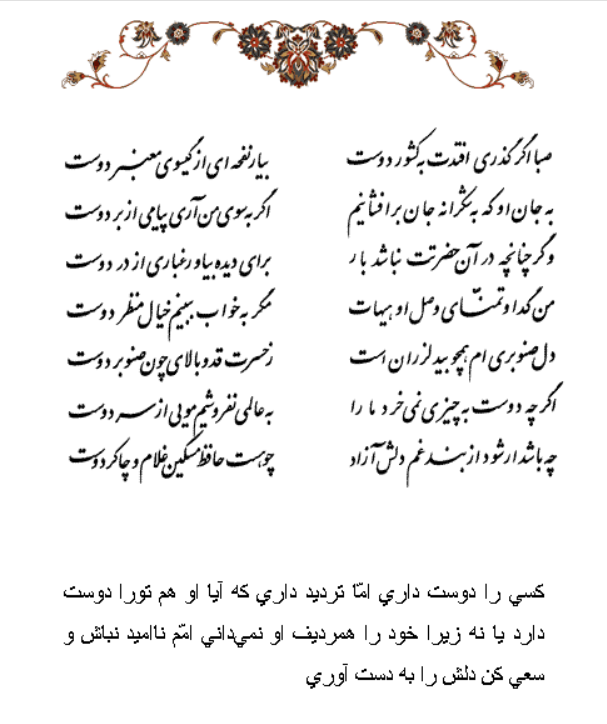 صبا اگر گذری افتدت به کشور دوست
بیار نفحه ای از گیسوی معنبر دوست
به جان او که به شکرانه جان برافشانم
اگر به سوی من آری پیامی از بر دوست
و گر چنانچه در آن حضرتت نباشد بار
برای دیده بیاور غباری از در دوست
من گدا و تمنّای وصل او هیهات
مگر به خواب ببینم خیال منظر دوست
دل صنوبری ام همچو بید لرزان است
ز حسرت قد و بالای چون صنوبر دوست
اگر چه دوست به چیزی نمی خرد ما را
به عالمی نفروشیم مویی از سر دوست
چه باشد ار شود از بند غم دلش آزاد
چو هست حافظ مسکین غلام و چاکر دوست
كسي را دوست داري امّا ترديد داري كه آيا او هم تورا دوست
دارد يا نه زيرا خود را همرديف او نمي‌داني امّم نااميد نباش و
سعي كن دلش را به دست آوري